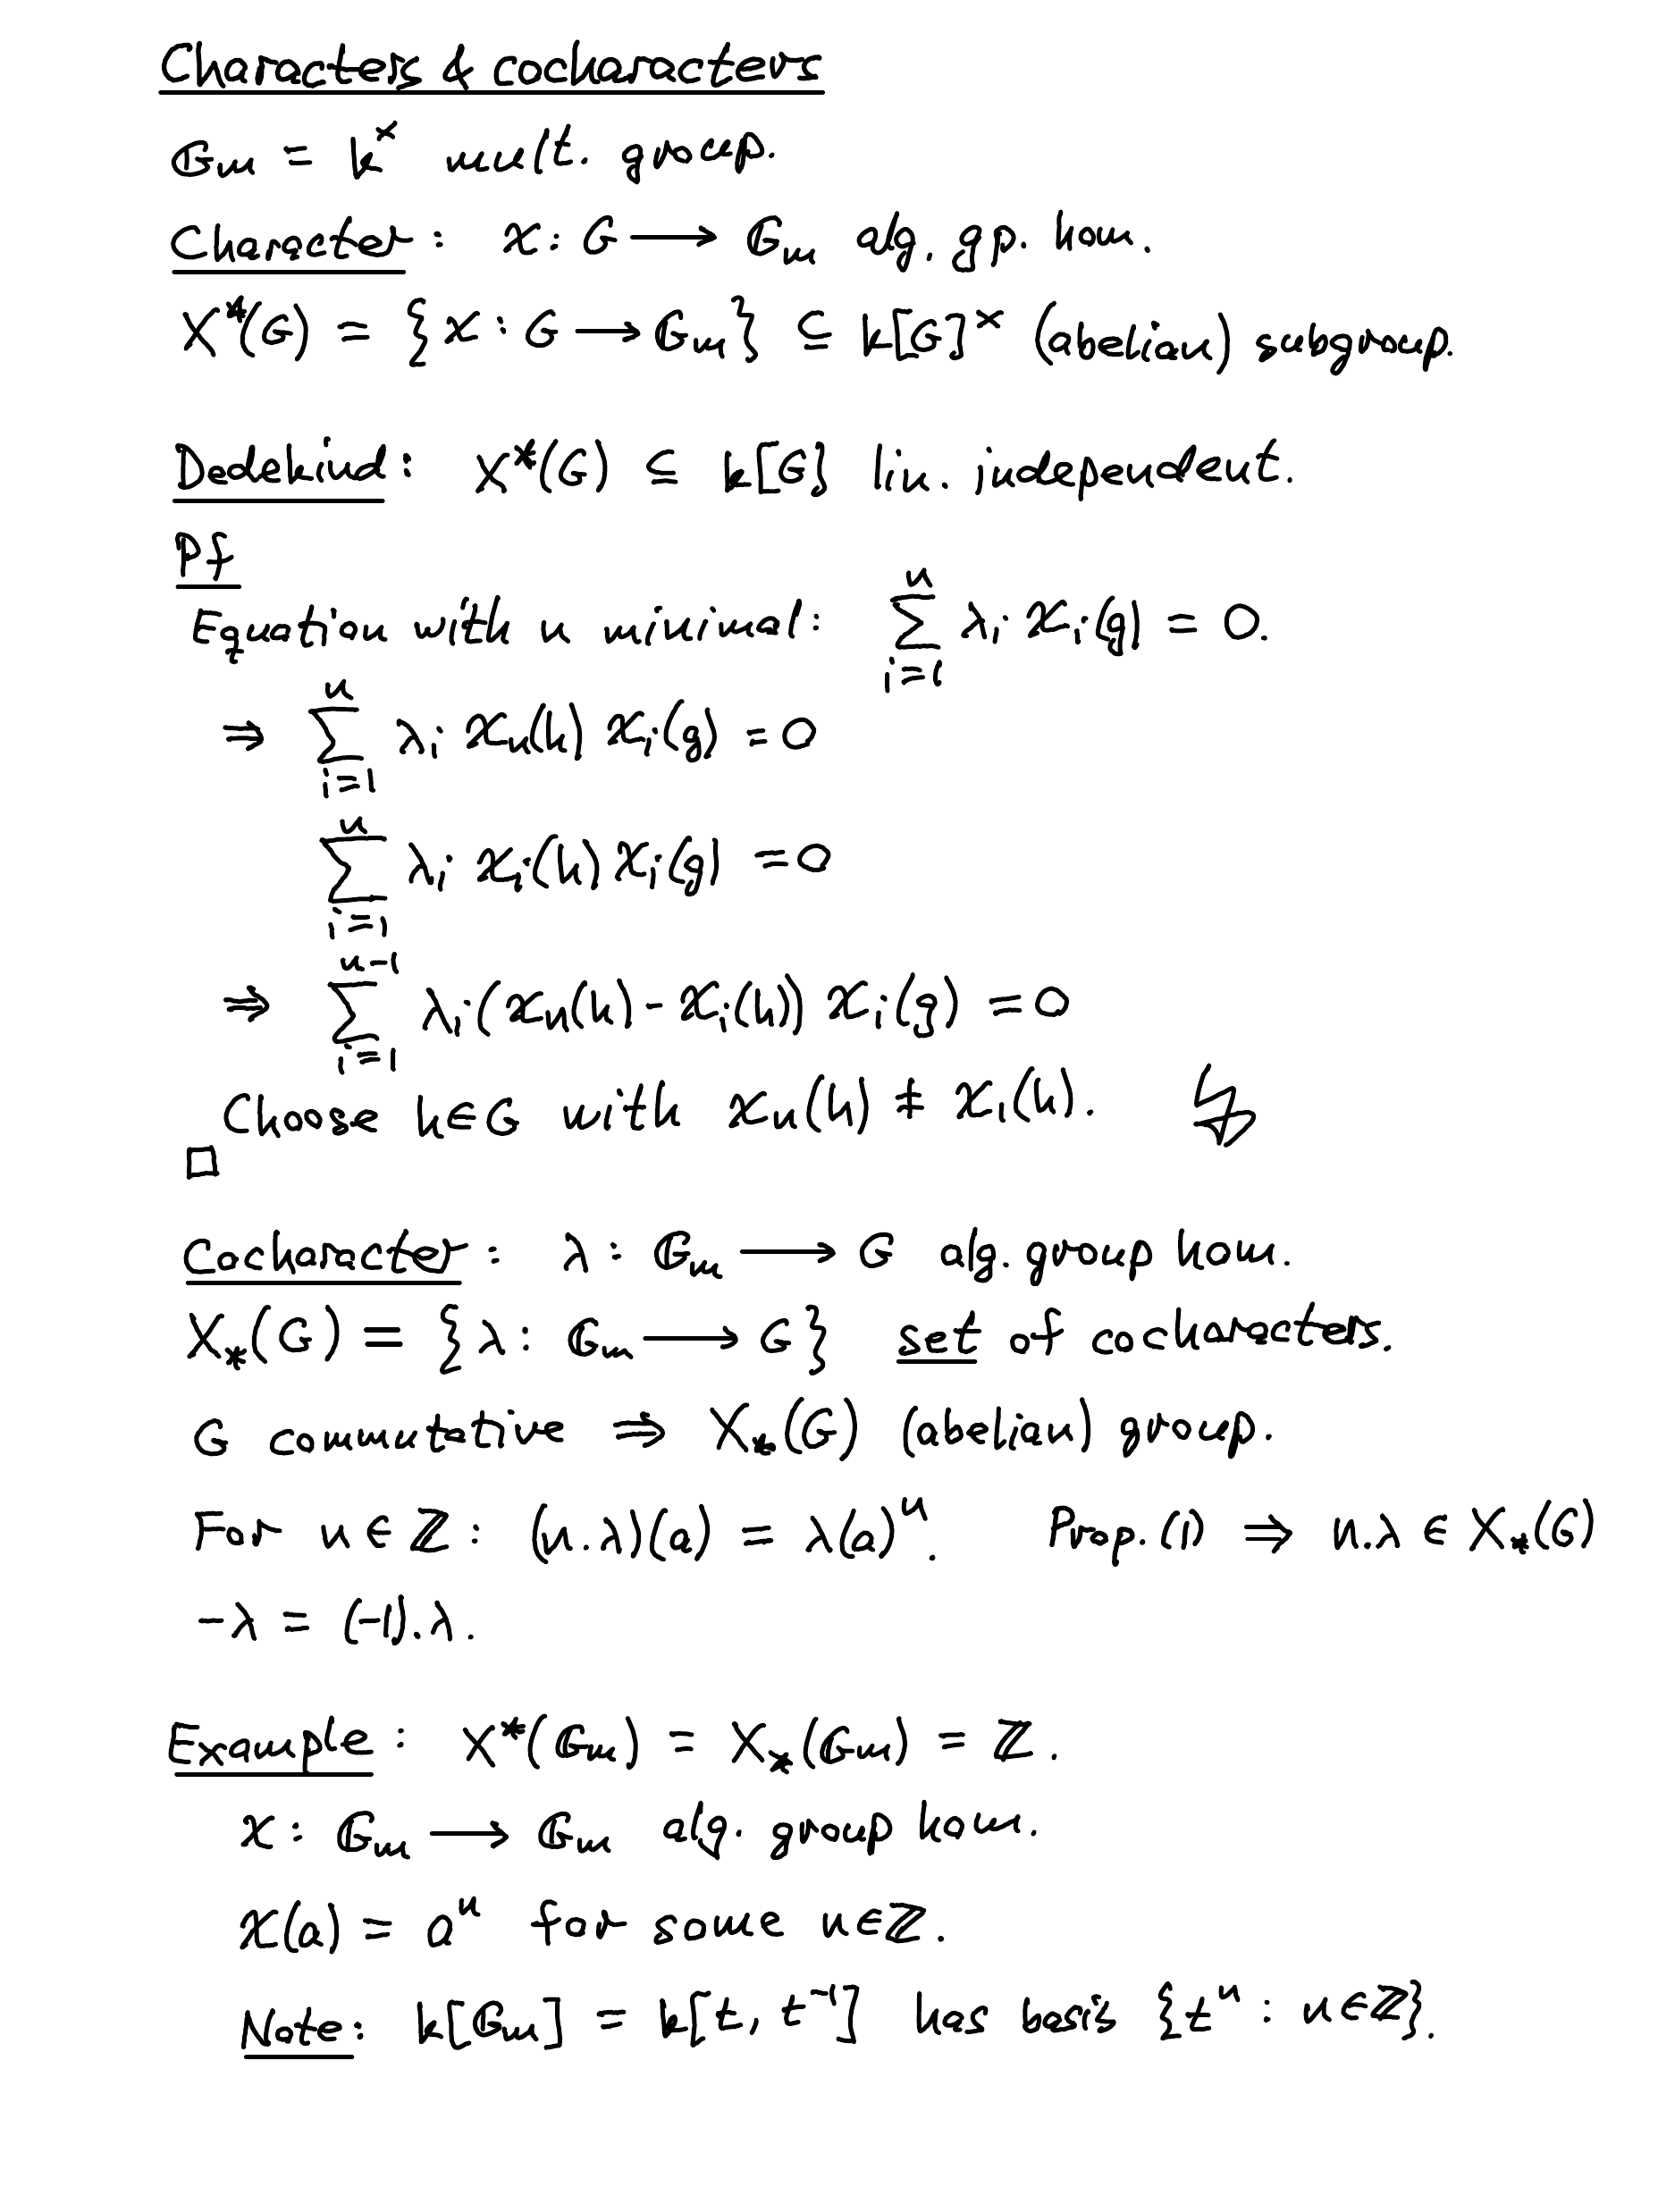 Characters & cocharacters
𝔾ₘ = k^× mult. group.
Character: χ: G ⟶ 𝔾ₘ alg. gp. hom.
X*(G) = {χ : G ⟶ 𝔾ₘ} ⊆ k[G]^× (abelian) subgroup.
Dedekind: X*(G) ⊆ k[G] lin. independent.
Pf
Equation with n minimal: ∑_{i=1}^{n} λ_i χ_i(g) = 0.
⇒ ∑_{i=1}^{n} λ_i χ_n(h) χ_i(g) = 0
∑_{i=1}^{n} λ_i χ_i(h) χ_i(g) = 0
⇒ ∑_{i=1}^{n-1} λ_i (χ_n(h) - χ_i(h)) χ_i(g) = 0
Choose h∈G with χ_n(h) ≠ χ_1(h). ↯
□
Cocharacter: λ : 𝔾ₘ ⟶ G alg. group hom.
X_*(G) = {λ : 𝔾ₘ ⟶ G} set of cocharacters.
G commutative ⇒ X_*(G) (abelian) group.
For n ∈ ℤ : (n.λ)(a) = λ(a)^n. Prop. (1) ⇒ n.λ ∈ X_*(G)
-λ = (-1).λ.
Example: X*(𝔾ₘ) = X_*(𝔾ₘ) = ℤ.
χ : 𝔾ₘ ⟶ 𝔾ₘ alg. group hom.
χ(a) = a^n for some n∈ℤ.
Note: k[𝔾ₘ] = k[t, t^{-1}] has basis {t^n : n∈ℤ}.